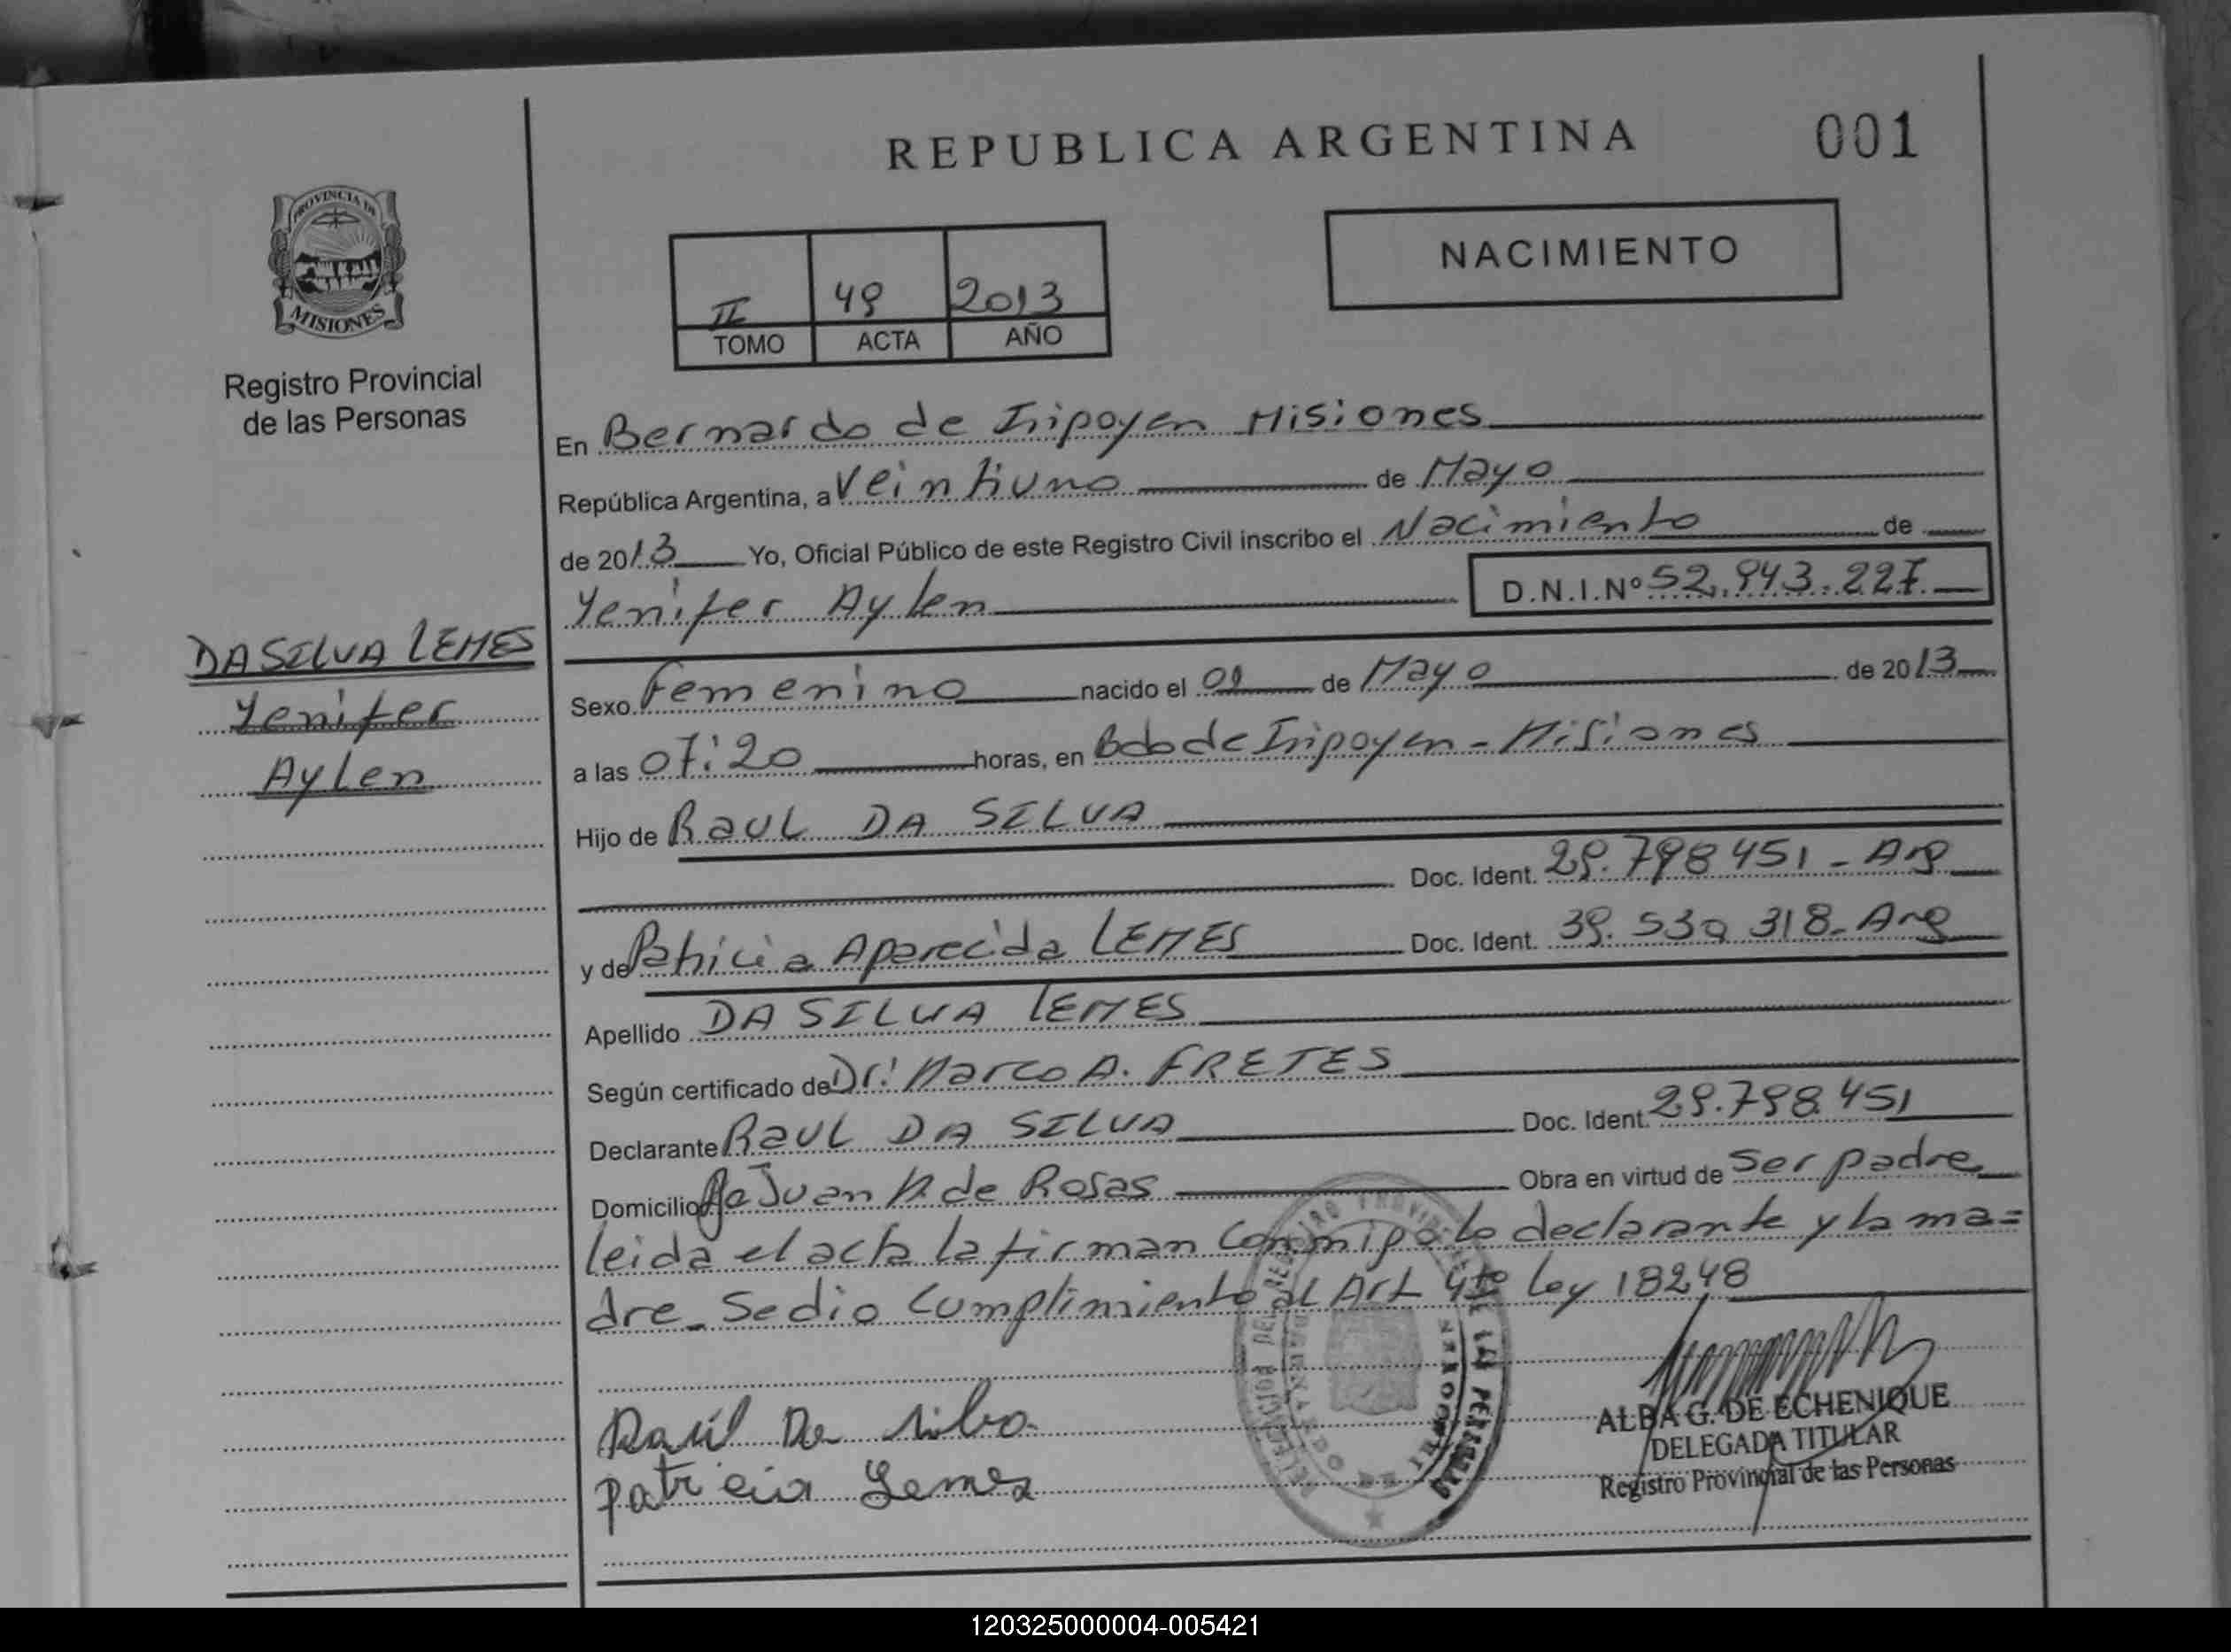 REPUBLICA ARGENTINA
001
PROVINCIA DE
MISIONES
Registro Provincial
de las Personas
II 49 2013
TOMO ACTA AÑO
NACIMIENTO
En Bernardo de Iripoyen Misiones
República Argentina, a Veintiuno de Mayo
de 2013 Yo, Oficial Público de este Registro Civil inscribo el Nacimiento de
Yenifer Aylen D.N.I.Nº 52.943.227
DA SILVA LEMES
Yenifer
Aylen
Sexo Femenino nacido el de Mayo de 2013
a las 07:20 horas, en Bdo de Iripoyen - Misiones
Hijo de Raul DA SILVA
Doc. Ident. 29.798451 - Arg
y de Patricia Aparecida LEMES Doc. Ident. 39.530 318- Arg
Apellido DA SILVA LEMES
Según certificado de Dr: Marco A. FRETES
Declarante Raul DA SILVA Doc. Ident. 29.798.451
Domicilio Juan M de Rosas Obra en virtud de Ser padre
leida el acta la firman conmigo lo declarante y la ma=
dre_ Se dio Cumplimiento al Art 4to ley 18248
Raúl Da silva
Patricia Lemes
ALBA G. DE ECHENIQUE
DELEGADA TITULAR
Registro Provincial de las Personas
120325000004-005421